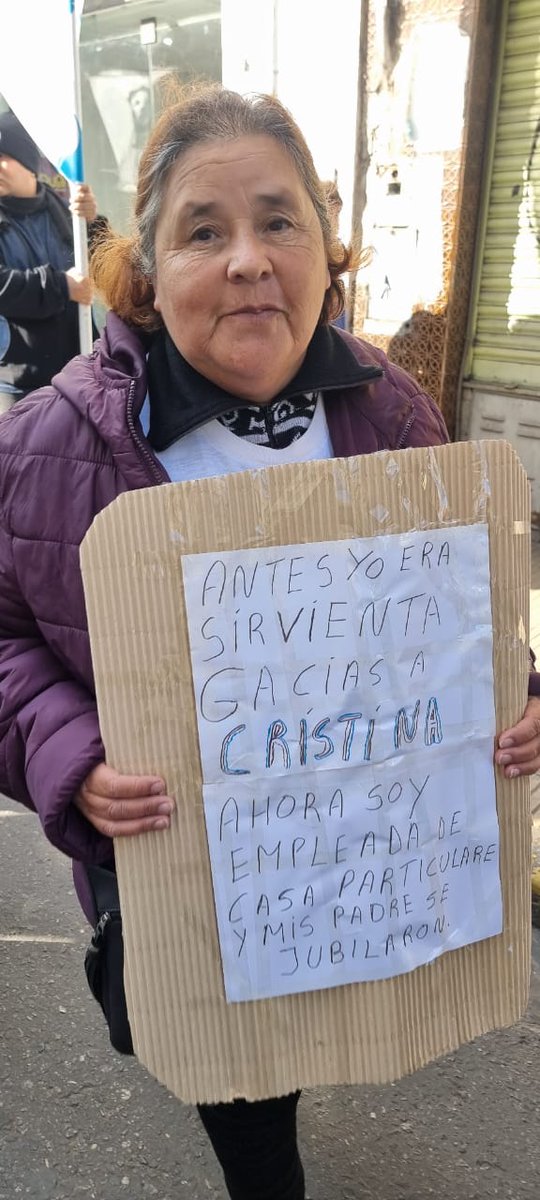 ANTES YO ERA
SIRVIENTA
GACIAS A
CRISTINA
AHORA SOY
EMPLEADA DE
CASA PARTICULARE
Y MIS PADRE SE
JUBILARON.